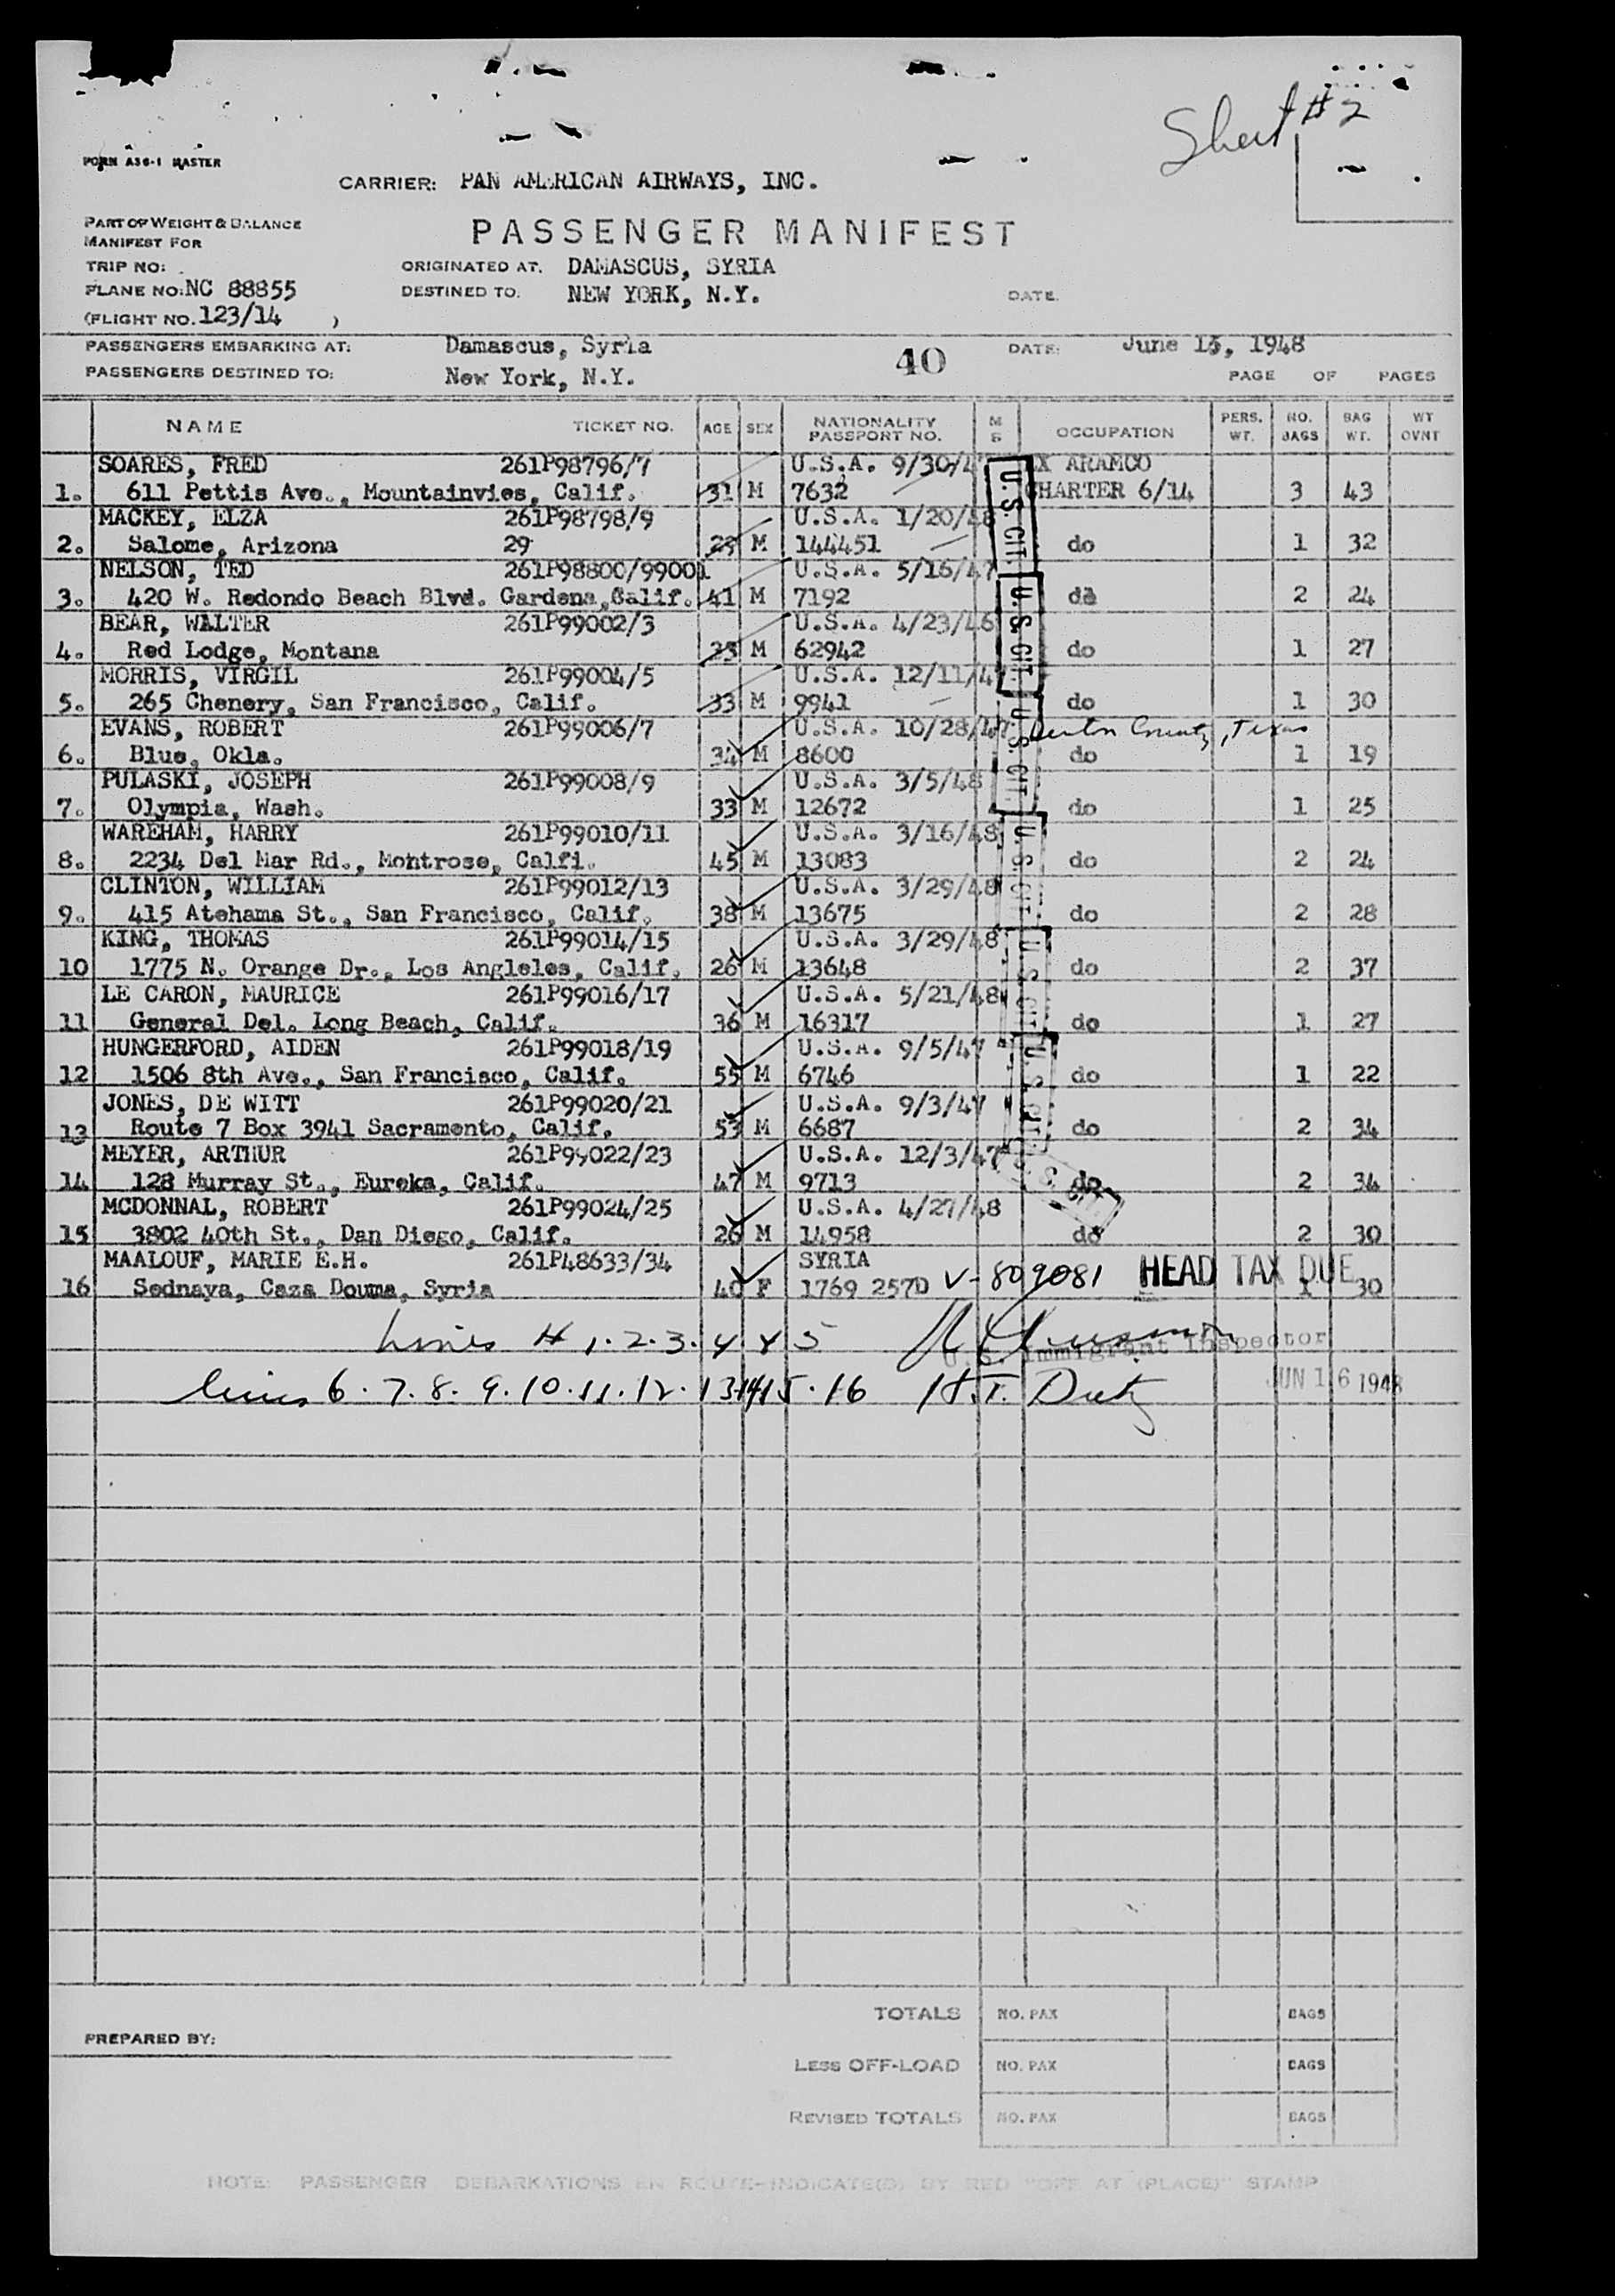 Sheet #2
FORM A36-1 MASTER
CARRIER: PAN AMERICAN AIRWAYS, INC.
PART OF WEIGHT & BALANCE
MANIFEST FOR
PASSENGER MANIFEST
TRIP NO:
ORIGINATED AT. DAMASCUS, SYRIA
PLANE NO: NC 88855
DESTINED TO. NEW YORK, N.Y.
DATE.
(FLIGHT NO. 123/14 )
PASSENGERS EMBARKING AT: Damascus, Syria 40 DATE: June 15, 1948
PASSENGERS DESTINED TO: New York, N.Y. PAGE OF PAGES
NAME TICKET NO. AGE SEX NATIONALITY PASSPORT NO. M S OCCUPATION PERS. WT. NO. BAGS BAG WT. WT OVNT
SOARES, FRED 261P98796/7 U.S.A. 9/30/47 EX ARAMCO
1. 611 Pettis Ave., Mountainvies, Calif. 31 M 7632 CHARTER 6/14 3 43
MACKEY, ELZA 261P98798/9 U.S.A. 1/20/48
2. Salome, Arizona 29 M 144451 do 1 32
NELSON, TED 261P98800/99001 U.S.A. 5/16/47
3. 420 W. Redondo Beach Blvd. Gardena, Calif. 41 M 7192 do 2 24
BEAR, WALTER 261P99002/3 U.S.A. 4/23/46
4. Red Lodge, Montana 23 M 62942 do 1 27
MORRIS, VIRGIL 261P99004/5 U.S.A. 12/11/47
5. 265 Chenery, San Francisco, Calif. 33 M 9941 do 1 30
EVANS, ROBERT 261P99006/7 U.S.A. 10/28/47 Denton County, Texas
6. Blue, Okla. 34 M 8600 do 1 19
PULASKI, JOSEPH 261P99008/9 U.S.A. 3/5/48
7. Olympia, Wash. 33 M 12672 do 1 25
WAREHAM, HARRY 261P99010/11 U.S.A. 3/16/48
8. 2234 Del Mar Rd., Montrose, Calfi. 45 M 13083 do 2 24
CLINTON, WILLIAM 261P99012/13 U.S.A. 3/29/48
9. 415 Atehama St., San Francisco, Calif. 38 M 13675 do 2 28
KING, THOMAS 261P99014/15 U.S.A. 3/29/48
10 1775 N. Orange Dr., Los Angleles, Calif. 26 M 13648 do 2 37
LE CARON, MAURICE 261P99016/17 U.S.A. 5/21/48
11 General Del. Long Beach, Calif. 36 M 16317 do 1 27
HUNGERFORD, AIDEN 261P99018/19 U.S.A. 9/5/47
12 1506 8th Ave., San Francisco, Calif. 55 M 6746 do 1 22
JONES, DE WITT 261P99020/21 U.S.A. 9/3/47
13 Route 7 Box 3941 Sacramento, Calif. 53 M 6687 do 2 34
MEYER, ARTHUR 261P99022/23 U.S.A. 12/3/47
14 128 Murray St., Eureka, Calif. 47 M 9713 do 2 34
MCDONNAL, ROBERT 261P99024/25 U.S.A. 4/27/48
15 3802 40th St., Dan Diego, Calif. 26 M 14958 do 2 30
MAALOUF, MARIE E.H. 261P48633/34 SYRIA
16 Sednaya, Caza Douma, Syria 40 F 1769 257D V-809081 HEAD TAX DUE 1 30
U.S. CIT.
U.S. CIT.
U.S. CIT.
U.S. CIT.
U.S. CIT.
U.S. CIT.
U.S. CIT.
Lines # 1.2.3.4 & 5
U.S. Immigrant Inspector
Lines 6.7.8.9.10.11.12.13.14.15.16 H.T. JUN 16 1948
TOTALS NO. PAX BAGS
PREPARED BY:
LESS OFF-LOAD NO. PAX BAGS
REVISED TOTALS NO. PAX BAGS
NOTE: PASSENGER DEBARKATIONS EN ROUTE-INDICATE(D) BY RED "OFF AT (PLACE)" STAMP